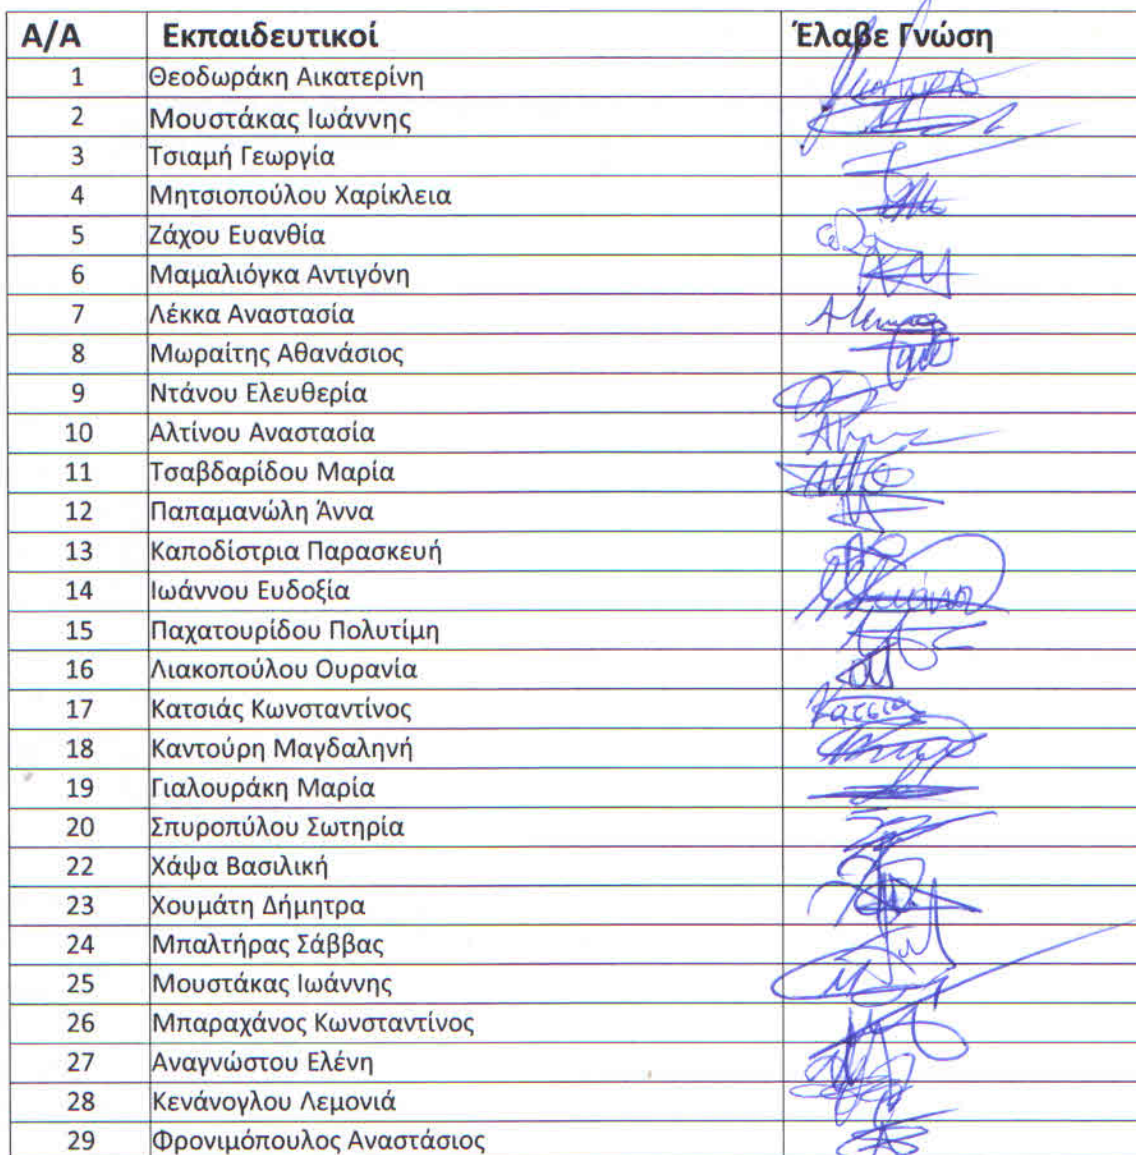 Α/Α Εκπαιδευτικοί Έλαβε Γνώση
1 Θεοδωράκη Αικατερίνη
2 Μουστάκας Ιωάννης
3 Τσιαμή Γεωργία
4 Μητσιοπούλου Χαρίκλεια
5 Ζάχου Ευανθία
6 Μαμαλιόγκα Αντιγόνη
7 Λέκκα Αναστασία
8 Μωραίτης Αθανάσιος
9 Ντάνου Ελευθερία
10 Αλτίνου Αναστασία
11 Τσαβδαρίδου Μαρία
12 Παπαμανώλη Άννα
13 Καποδίστρια Παρασκευή
14 Ιωάννου Ευδοξία
15 Παχατουρίδου Πολυτίμη
16 Λιακοπούλου Ουρανία
17 Κατσιάς Κωνσταντίνος
18 Καντούρη Μαγδαληνή
19 Γιαλουράκη Μαρία
20 Σπυροπύλου Σωτηρία
22 Χάψα Βασιλική
23 Χουμάτη Δήμητρα
24 Μπαλτήρας Σάββας
25 Μουστάκας Ιωάννης
26 Μπαραχάνος Κωνσταντίνος
27 Αναγνώστου Ελένη
28 Κενάνογλου Λεμονιά
29 Φρονιμόπουλος Αναστάσιος